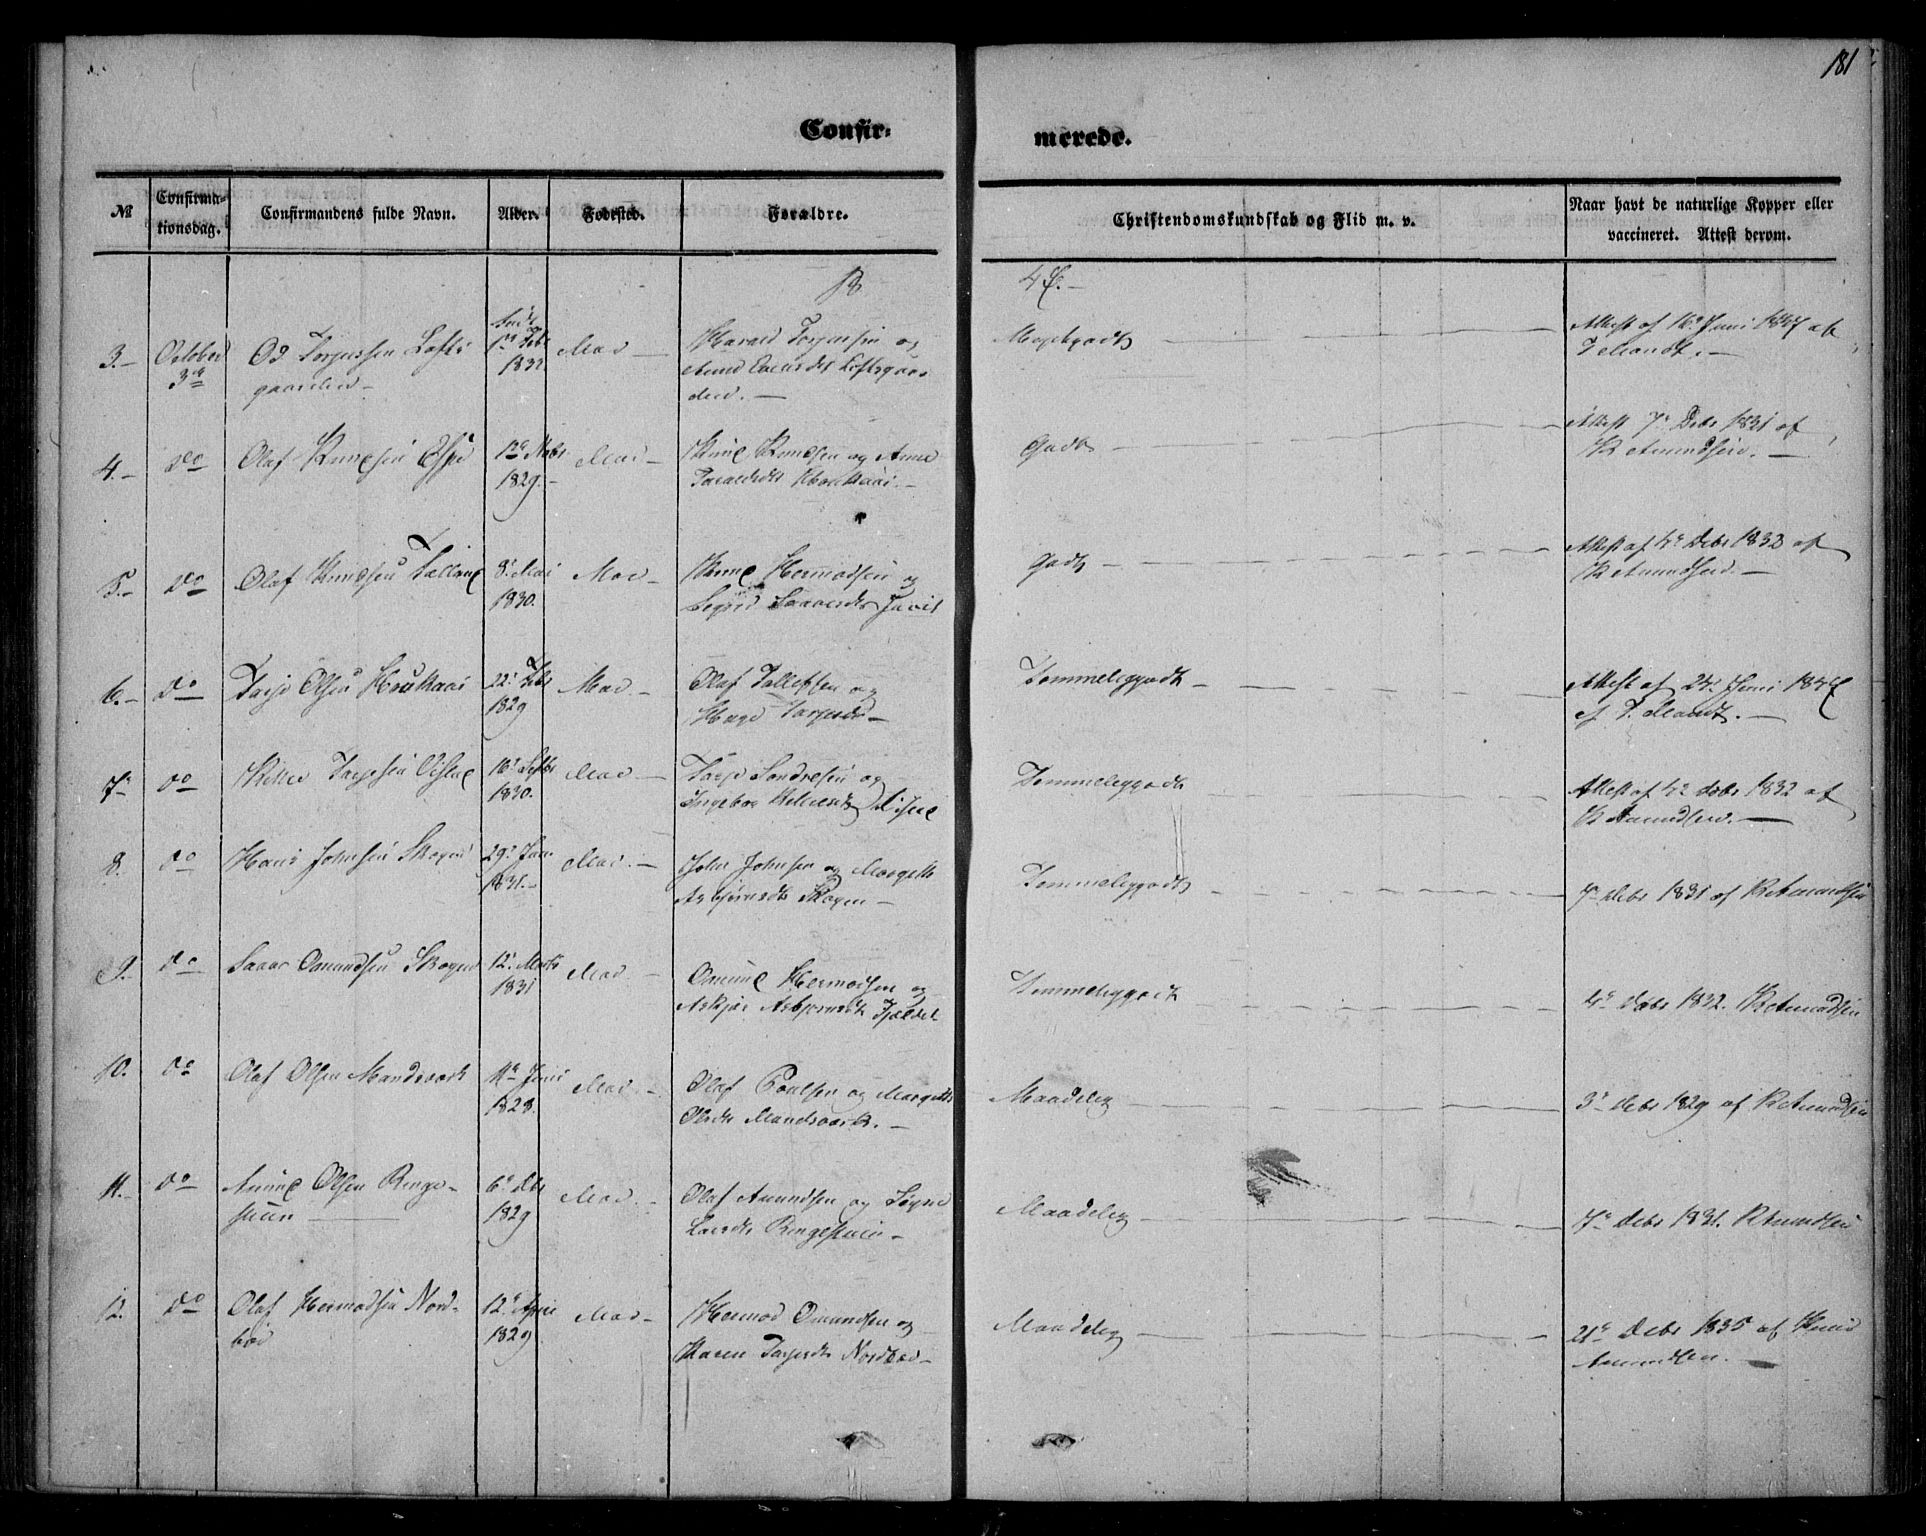 181
Confir-
merede.
№
Confirma-
tionsdag.
Confirmandens fulde Navn.
Alder.
Fødested.
Forældre.
Christendomskundskab og Flid m. v.
Naar havt de naturlige Kopper eller
vaccineret. Attest derom.
47.
3. October 3die
Od Torjussen Lofts-
gaarden
1832
Moe
Harald Torjussen og
Loftsgaar-
den.
Meget godt
Attest af 16 Juni 1847 af
T. Mandt.
4. do
Olaf Knudsen
12te Nobr
1829.
Moe
Knud Knudsen og Anne
Taraldsdtr Houkaas.
Godt
Attest 7de Debr 1831 af
K Amundsen.
5. do
Olaf Knudsen
8de Mai
1830.
Moe
Knud Hermodsen og
Sigrid
Godt
Attest af 4de Debr 1832 af
K Amundsen.
6. do
Tarje Olsen Houkaas
22de Febr
1829
Moe
Olaf Tallefsen og
Hæge Tarjesdr
Temmelig godt
Attest af 24 Juni 1847
af T. Mandt.
7. do
Tarjesen
16de Septbr
1830.
Moe
Tarje Sondresen og
Ingebor
Temmelig godt
Attest af 4de Debr 1832 af
K Amundsen.
8. do
Hans Johnsen Skogen
29de Jan
1831.
Moe
John Johnsen og Margith
Asbjørnsdtr Skogen
Temmelig godt
7de Debr 1831 af K Amundsen
9. do
Omundsen Skogen
12te Marts
1831
Moe
Omund Hermodsen og
Askjær Asbjørnsdtr
Temmelig godt
4de Debr 1832. K Amundsen
10. do
Olaf Olsen Mandsværk
11te Juni
1828.
Moe
Olaf Poulsen og Margith
Olsdtr Mandsværk.
Maadelig
3de Debr 1829 af K Amundsen
11. do
Amund Olsen Ringe-
stuen
6te Dbr
1829
Moe
Olaf Amundsen og Signe
Ringestuen
Maadelig
7de Debr 1831. K Amundsen
12. do
Olaf Hermodsen Nord-
bøe
12te April
1829
Moe
Hermod Omundsen og
Karen Tarjesdtr Nordbøe
Maadelig
21de Debr 1835 af Knud
Amundsen.